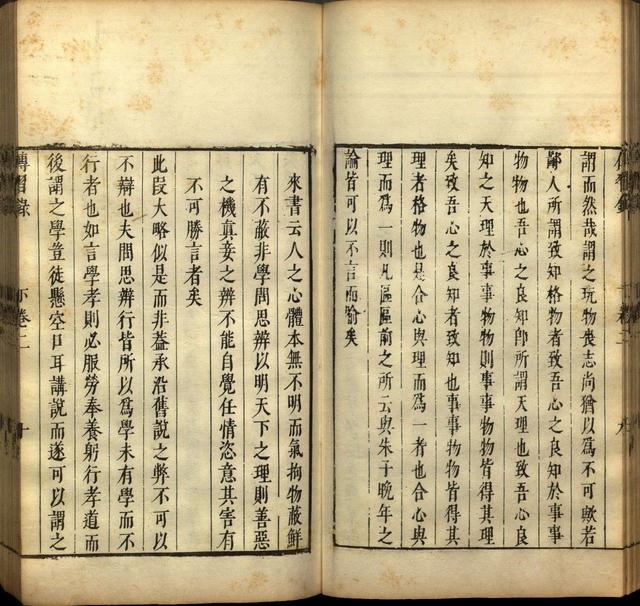 謂而然哉謂之玩物喪志尚猶以為不可歟若
鄙人所謂致知格物者致吾心之良知於事事
物物也吾心之良知即所謂天理也致吾心良
知之天理於事事物物則事事物物皆得其理
矣致吾心之良知者致知也事事物物皆得其
理者格物也是合心與理而為一者也合心與
理而為一則凡區區前之所云與朱子晚年之
論皆可以不言而喻矣
來書云人之心體本無不明而氣拘物蔽鮮
有不蔽非學問思辨以明天下之理則善惡
之機真妄之辨不能自覺任情恣意其害有
不可勝言者矣
此段大略似是而非蓋承沿舊說之弊不可以
不辯也夫問思辨行皆所以為學未有學而不
行者也如言學孝則必服勞奉養躬行孝道而
後謂之學豈徒懸空口耳講說而遂可以謂之
傳習錄 下卷二 十